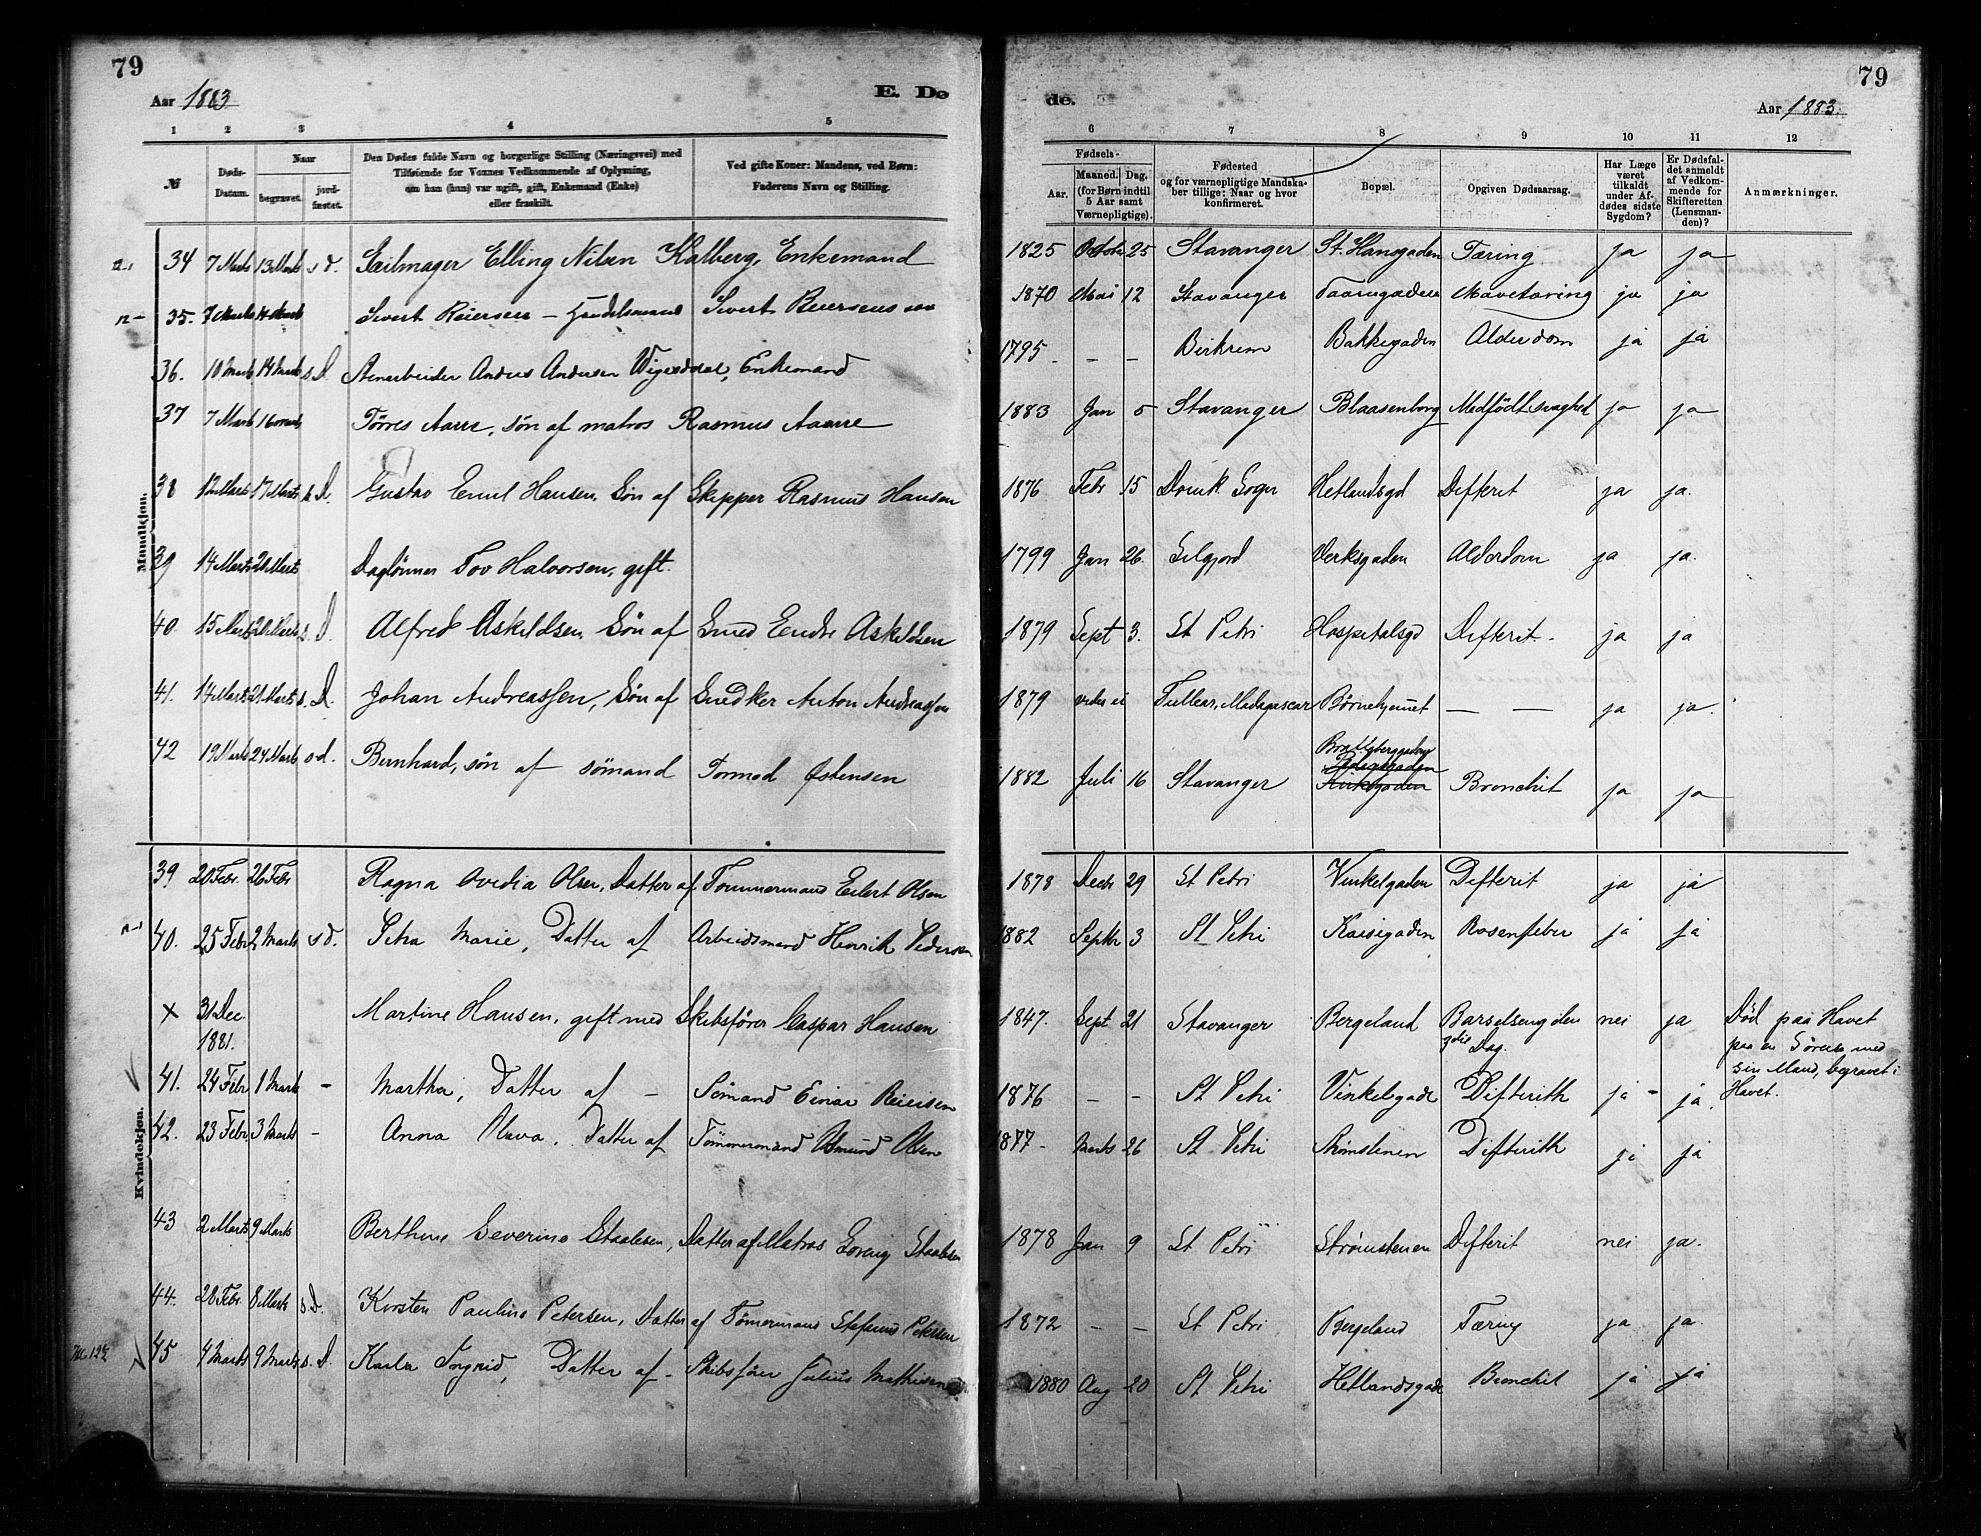 79
Aar 1883
E. Dø
1 2 3 4 5
№
Døds-
Datum.
Naar
begravet.
jord-
fæstet.
Den Dødes fulde Navn og borgerlige Stilling (Næringsvei) med
Tilføiende for Voxnes Vedkommende af Oplysning,
om han (hun) var ugift, gift, Enkemand (Enke)
eller fraskilt.
Ved gifte Koner: Mandens, ved Børn:
Faderens Navn og Stilling.
Mandkjøn.
34 7 Marts 13 Marts s d. Seilmager Elling Nilsen Kalberg, Enkemand
35. 7 Marts 14 Marts Sivert Reiersen — Handelsmand Sivert Reiersens
36. 10 Marts 14 Marts s D. Anders Andersen Enkemand
37 7 Marts 16 Marts Törres Aarre, sön af matros Rasmus Aarre
38 12 Marts 17 Marts s D. Gustav Emil Hansen, Søn af Skipper Rasmus Hansen
39 14 Marts 20 Marts Daglønner Tov Halvorsen, gift.
40 15 Marts 20 Marts s. D. Alfred Askildsen, Søn af Smed Endre Askildsen
41. 14 Marts 21 Marts s. D. Johan Andreassen, Søn af Snedker Anton Andreassen
42 19 Marts 24 Marts s d. Bernhard, sön af sömand Tormod Østensen
Kvindekjøn.
39 20 Febr. 26 Febr Ragna Ovidia Olsen, Datter af Tømmermand Eilert Olsen
40. 25 Febr 2 Marts s d. Petra Marie, Datter af Arbeidsmand Henrik Pedersen
x 31 Dec Martine Hansen, gift med Skibsfører Caspar Hansen
1881.
41. 24 Febr 1 Marts - Martha, Datter af - Sømand Einar Reiersen
42. 23 Febr 3 Marts - Anna Olava, Datter af Tömmermand Olsen
43 2 Marts 9 Marts Berthine Severine Staalesen, Datter af Matros Staalesen
44. 28 Febr. 8 Marts s. D. Kirsten Pauline Petersen, Datter af Tömermand Petersen
45 4 Marts 9 Marts s. D. Karla Ingrid, Datter af - Skibsfører Julius Mathisen
79
de.
Aar 1883.
6 7 8 9 10 11 12
Fødsels-
Aar.
Maaned. Dag.
(for Børn indtil
5 Aar samt
Værnepligtige).
Fødested
og for værnepligtige Mandska-
ber tillige: Naar og hvor
konfirmeret.
Bopæl.
Opgiven Dødsaarsag.
Har Læge
været
tilkaldt
under Af-
dødes sidste
Sygdom?
Er Dødsfal-
det anmeldt
af Vedkom-
mende for
Skifteretten
(Lensman-
den)?
Anmærkninger.
1825 Octob 25 Stavanger St. Hansgaden Tæring ja ja
1870 Mai 12 Stavanger Taarngaden Mavetæring ja ja
1795 - - - Birkrem Bakkegaden Alderdom ja ja
1883 Jan 5 Stavanger Blaasenborg Medfødt svaghed ja ja
1876 Febr 15 Domk. Sogn Hetlandsgd Difterit ja ja.
1799 Jan 26. Silgjord Verksgaden Alderdom ja ja.
1879 Sept 3. St Petri Hospitalsgd Difterit. ja ja
1879 vides ei Tullear, Madagascar Børnehjemmet — — ja ja.
1882 Juli 16 Stavanger Bronchit ja ja
1878 Decbr 29 St Petri Vinkelgaden Difterit ja ja
1882 Septbr 3 St Petri Kaisegaden Rosenfeber ja ja
1847. Sept 21 Stavanger Bergeland Barselseng den nei ja Død paa Havet
Dag. paa en Søreise med
sin Mand, begravet i
Havet.
1876 - - St Petri Vinkelgade Difterith ja - ja.
1877 - Marts 26 St Petri Strømstenen Difterith ja ja
1878 Jan 9 St Petri Strømstenen Difterit nei ja.
1872 — — St Petri Bergeland Tæring ja ja.
1880 Aug 20 St Petri Hetlandsgade Bronchit ja ja